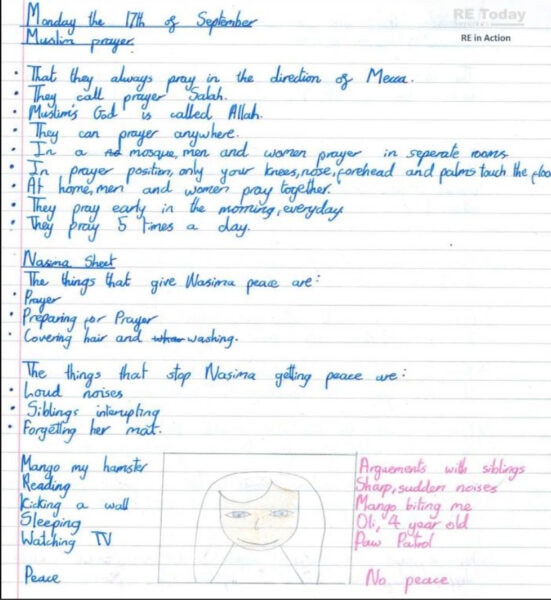 Monday the 17th of September
RE Today
RE in Action
Muslim prayer.
• That they always pray in the direction of Mecca.
• They call prayer Salah.
• Muslim's God is called Allah.
• They can prayer anywhere.
• In a mosque, men and women prayer in seperate rooms
• In prayer position, only your knees, nose, forehead and palms touch the floo
• At home, men and women pray together.
• They pray early in the morning, everyday
• They pray 5 times a day.
Nasima Sheet
The things that give Nasima peace are:
• Prayer
• Preparing for Prayer
• Covering hair and washing.
The things that stop Nasima getting peace are:
• Loud noises
• Siblings interupting
• Forgetting her mat.
Mango my hamster
Reading
Kicking a wall
Sleeping
Watching TV
Peace
Arguements with siblings
Sharp, sudden noises
Mango biting me
Oli, 4 year old
Paw Patrol
No peace